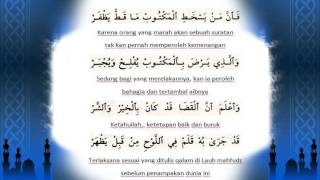 فَاَنَّ مَنْ يَسْخَطِ الْمَكْتُوْبَ مَا قَطُّ يَظْفَرْ
Karena orang yang marah akan sebuah suratan
tak kan pernah memperoleh kemenangan
وَالَّذِي يَرْضَ بِالْمَكْتُوْبِ يُفْلِحْ وَيُجْبَرْ
Sedang bagi yang merelakannya, kan ia peroleh
bahagia dan tertambal aibnya
وَاعْلَمْ اَنَّ الْقَضَا قَدْ كَانَ بِالْخَيْرِ وَالشَّرّْ
Ketahuilah, ketetapan baik dan buruk
قَدْ جَرَىٰ بِهْ قَلَمْ فِي اللَّوْحِ مِنْ قَبْلِ يَظْهَرْ
Terlaksana sesuai yang ditulis qalam di Lauh mahfudz
sebelum penampakan dunia ini